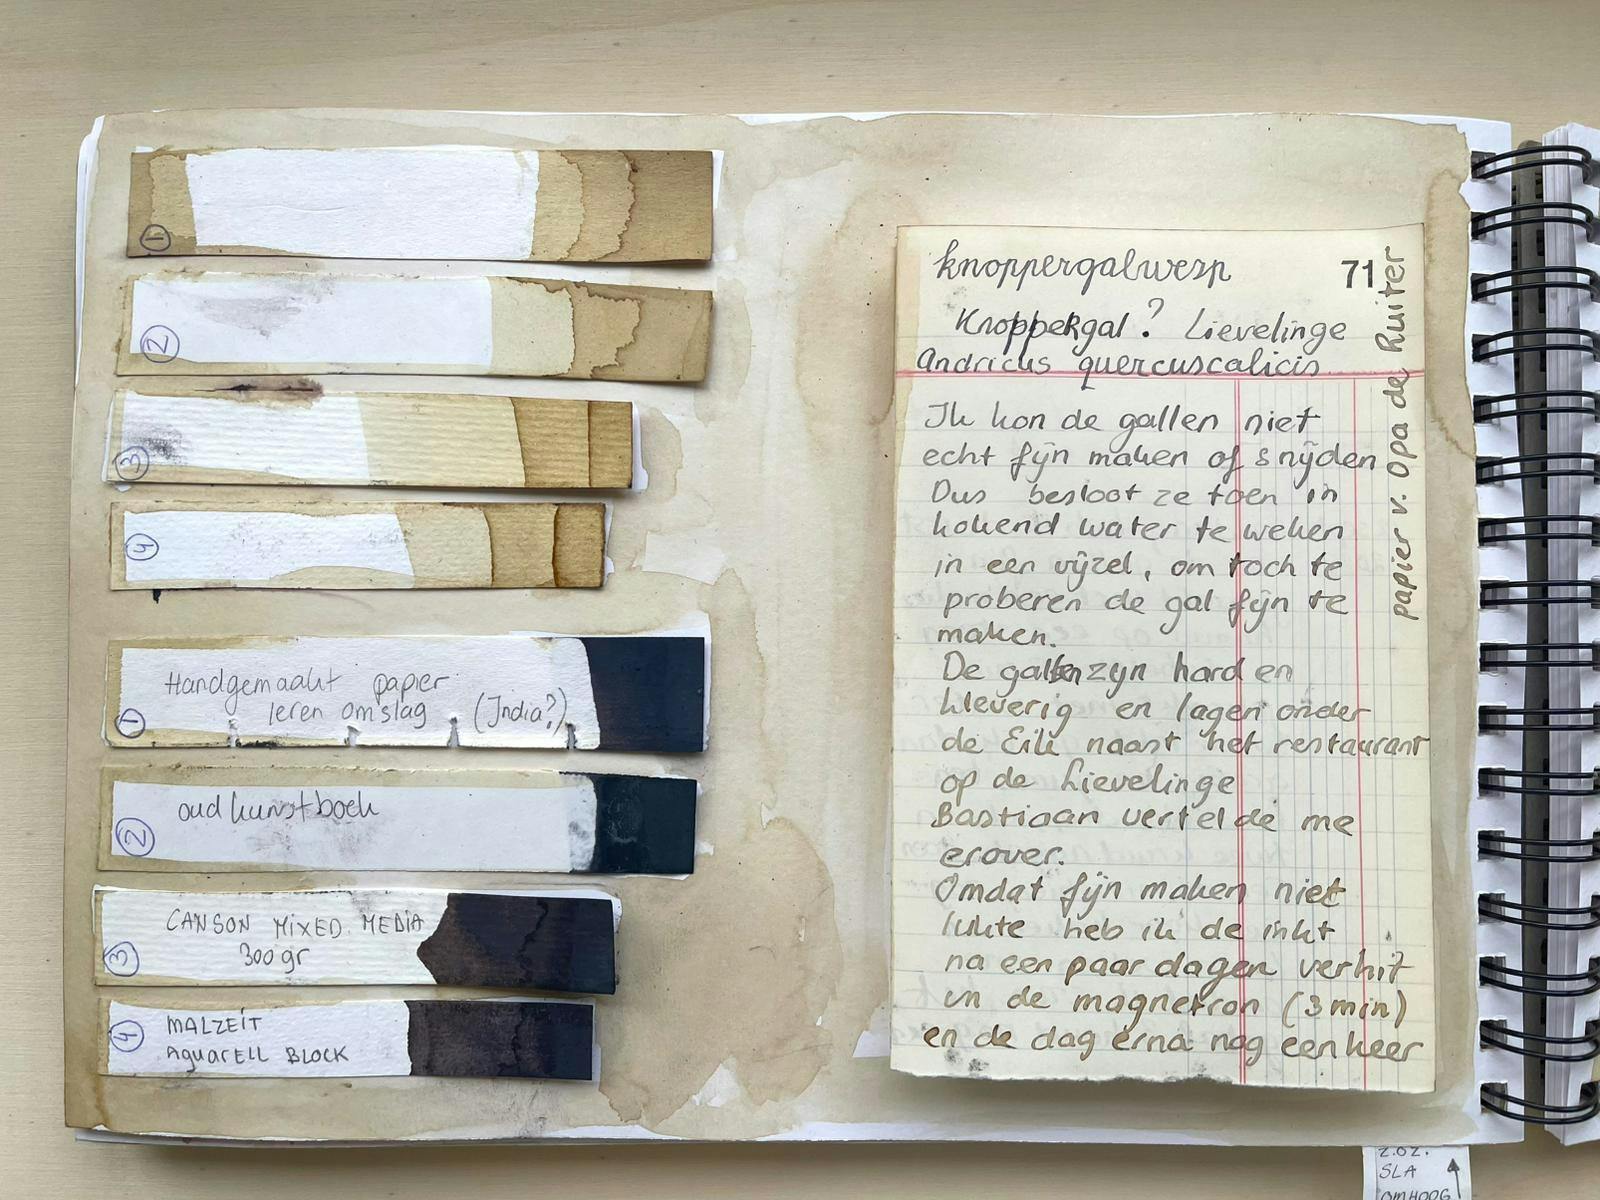 1
2
3
4
1
Handgemaakt papier
leren omslag (India?)
2
oud kunstboek
3
CANSON MIXED MEDIA
300 gr
4
MALZEIT
AquarELL BLOCK
knoppergalwesp 71
Knoppergal? Lievelinge
Andricus quercuscalicis
papier v. Opa de Ruiter
Ik kon de gallen niet
echt fijn maken of snijden
Dus besloot ze toen in
kokend water te weken
in een vijzel, om toch te
proberen de gal fijn te
maken.
De gallen zijn hard en
kleverig en lagen onder
de Eik naast het restaurant
op de Lievelinge
Bastiaan vertelde me
erover.
Omdat fijn maken niet
lukte heb ik de inkt
na een paar dagen verhit
in de magnetron (3 min)
en de dag erna nog een keer
2.02.
SLA
OMHOOG